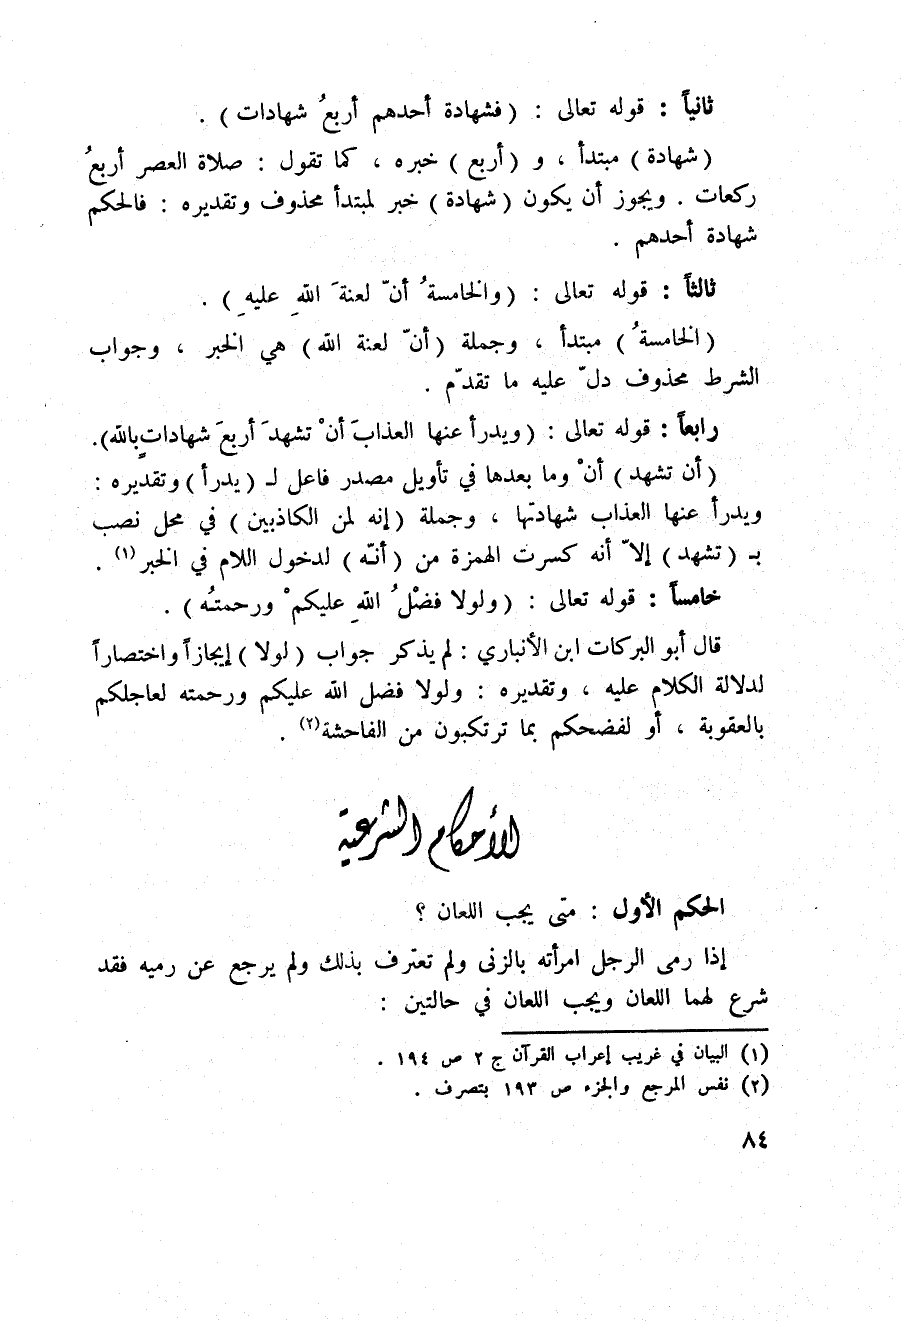 ثانياً : قوله تعالى : ( فشهادة أحدهم أربعُ شهادات ) .
( شهادة ) مبتدأ ، و ( أربع ) خبره ، كما تقول : صلاة العصر أربعُ
ركعات . ويجوز أن يكون ( شهادة ) خبر لمبتدأ محذوف وتقديره : فالحكم
شهادة أحدهم .
ثالثاً : قوله تعالى : ( والخامسةُ أنّ لعنةَ اللهِ عليهِ ) .
( الخامسةُ ) مبتدأ ، وجملة ( أنّ لعنة الله ) هي الخبر ، وجواب
الشرط محذوف دلّ عليه ما تقدّم .
رابعاً : قوله تعالى : ( ويدرأ عنها العذابَ أنْ تشهدَ أربعَ شهاداتٍ بالله ) .
( أن تشهد ) أنْ وما بعدها في تأويل مصدر فاعل لـ ( يدرأ ) وتقديره :
ويدرأ عنها العذاب شهادتها ، وجملة ( إنه لمن الكاذبين ) في محل نصب
بـ ( تشهد ) إلاّ أنه كسرت الهمزة من ( أنّه ) لدخول اللام في الخبر (١) .
خامساً : قوله تعالى : ( ولولا فضْلُ اللهِ عليكمْ ورحمتُه ) .
قال أبو البركات ابن الأنباري : لم يذكر جواب ( لولا ) إيجازاً واختصاراً
لدلالة الكلام عليه ، وتقديره : ولولا فضل الله عليكم ورحمته لعاجلكم
بالعقوبة ، أو لفضحكم بما ترتكبون من الفاحشة (٢) .
الأحكام الشرعية
الحكم الأول : متى يجب اللعان ؟
إذا رمى الرجل امرأته بالزنى ولم تعترف بذلك ولم يرجع عن رميه فقد
شرع لهما اللعان ويجب اللعان في حالتين :
(١) البيان في غريب إعراب القرآن ج ٢ ص ١٩٤ .
(٢) نفس المرجع والجزء ص ١٩٣ بتصرف .
٨٤